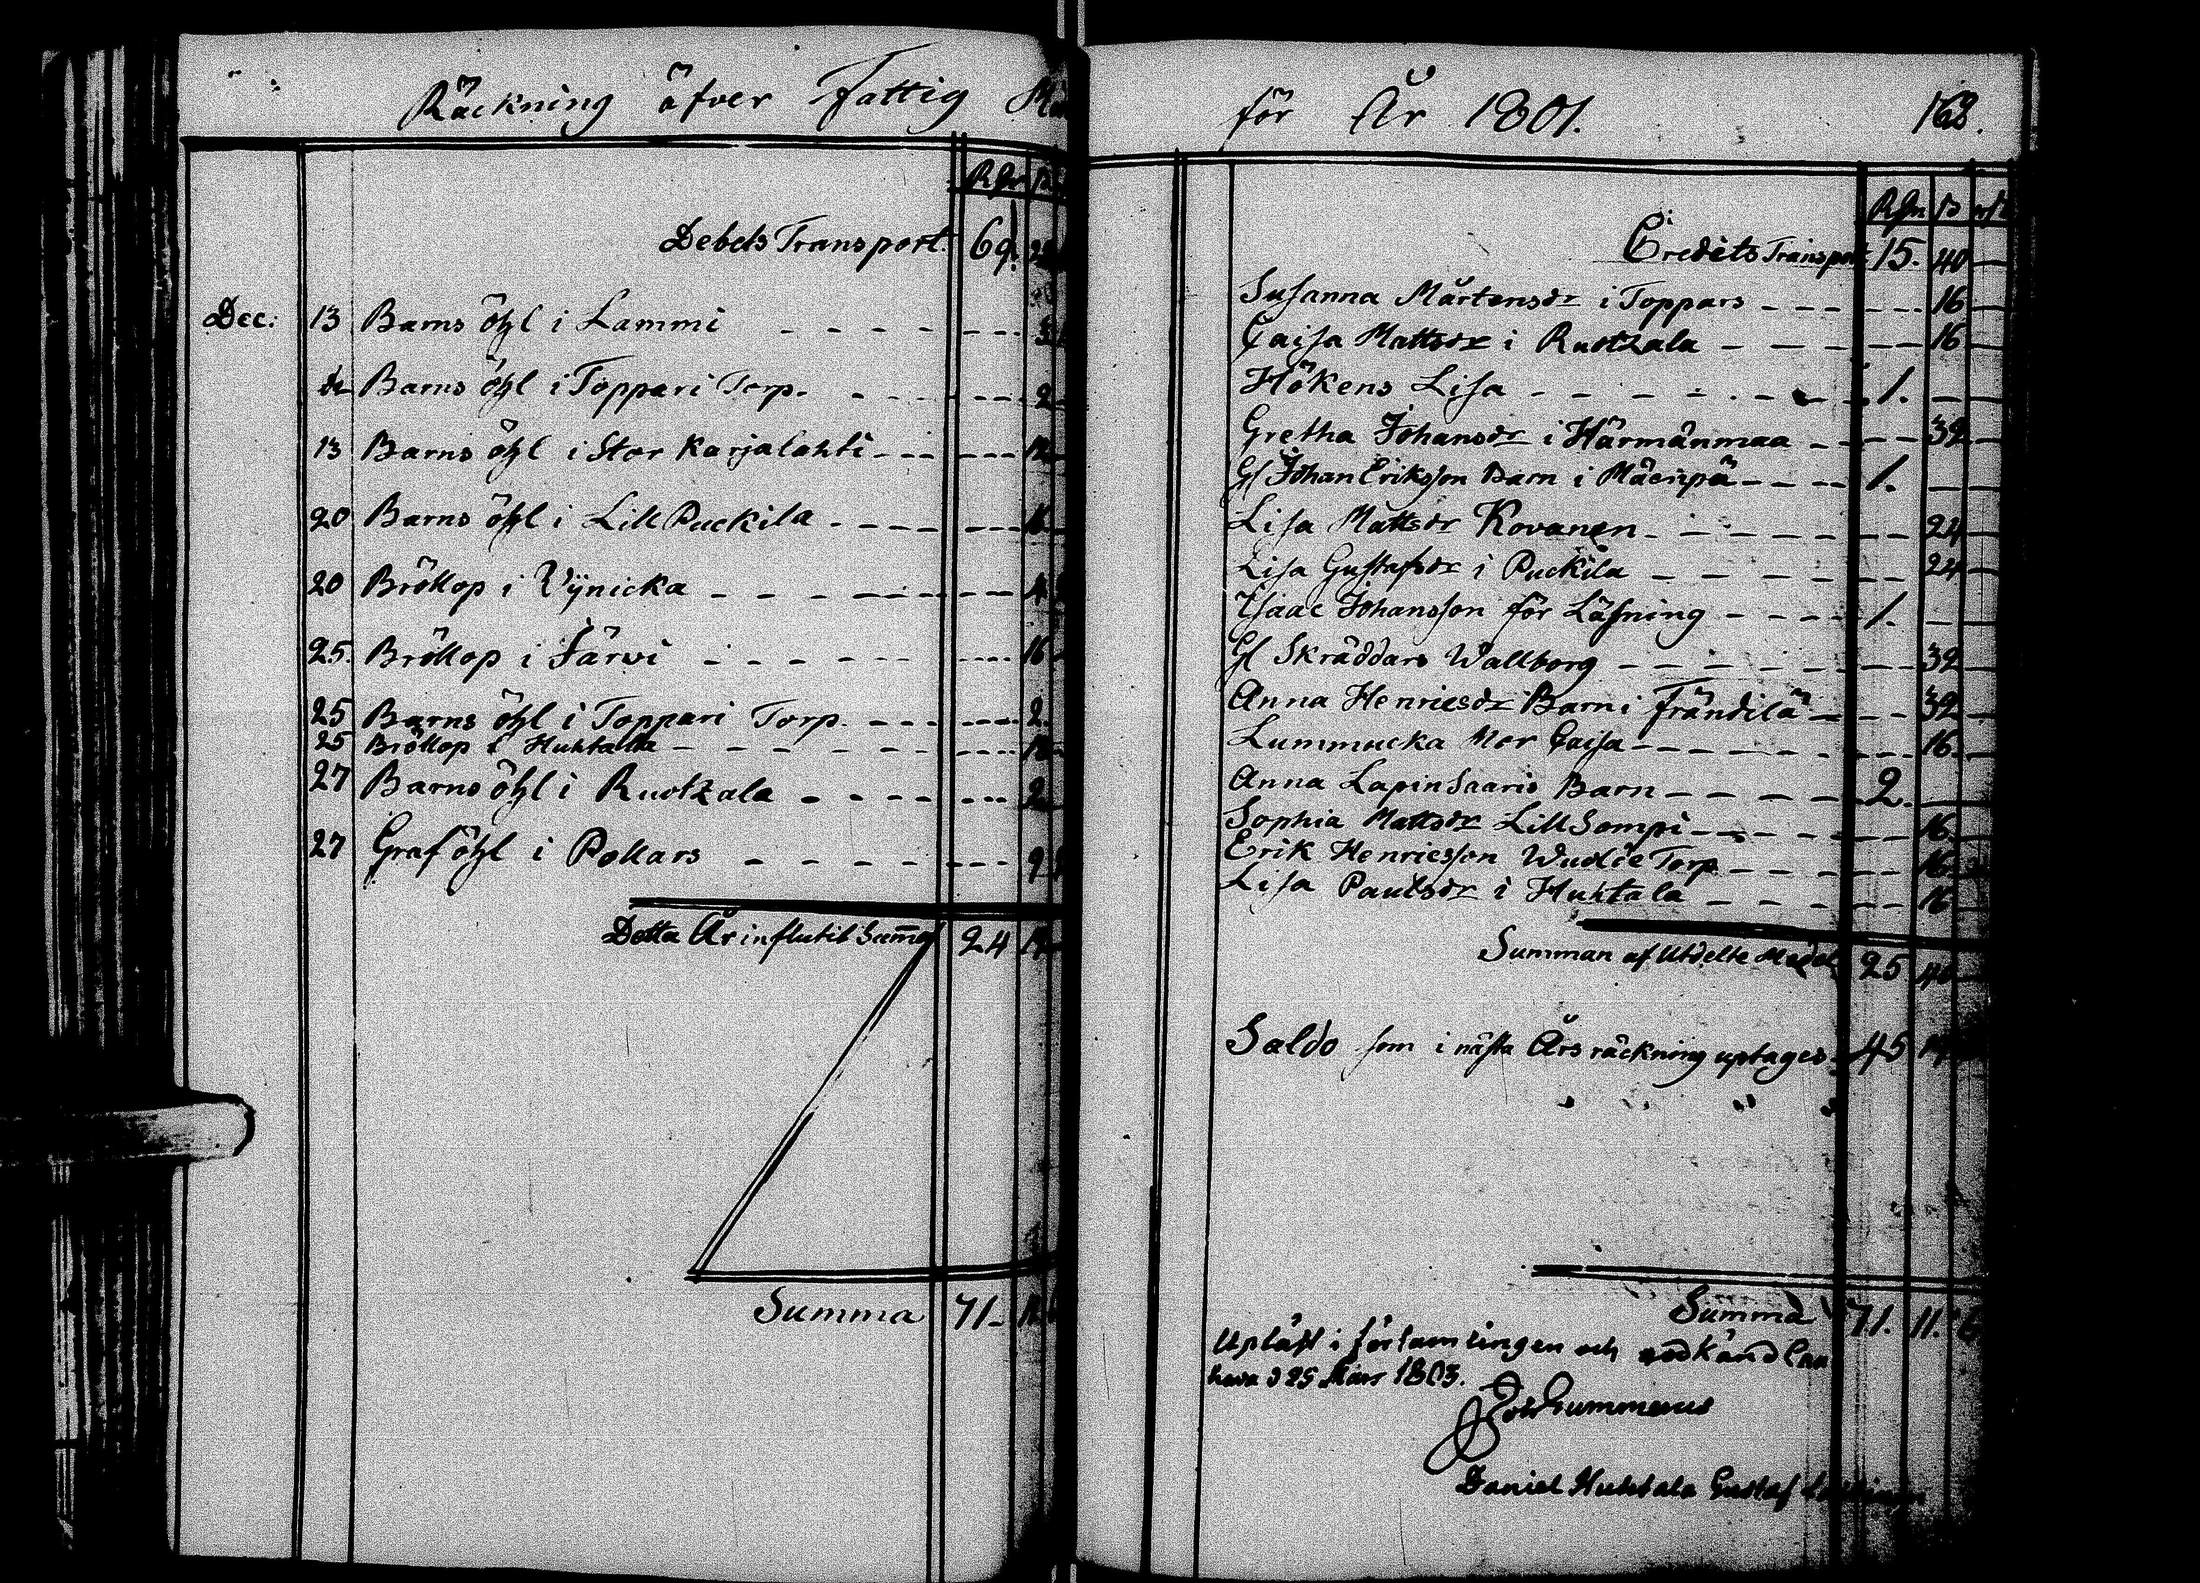 Räckning öfver Fattig
Rdr
Debets Transport. 69.
Dec: 13 Barns öhl i Lammi
Barns öhl i Toppari Torp. 2
13 Barns öhl i Stor Karjalahti 12
20 Barns öhl i Lill Puckila 16
20 Bröllop i Wynicka 4
25. Bröllop i Järvi 16
25 Barns öhl i Toppari Torp. 2.
25 Bröllop i Huhtalla
27 Barns öhl i Ruotzala 2
27 Graföhl i Pollars 9
Detta År influtit Summa 24
Summa 71
för År 1801. 168.
Rdr
Credits Transport 15. 40 —
Susanna Mårtensdr i Toppars 16 —
Caisa Mattsdr i Ruotzala 16 —
Hökens Lisa 1. —
Gretha Johansdr i Härmänmaa 32 —
Gl Johan Eriksson Barn i Mäenpä 1. —
Lisa Mattsdr Kovanen 24 —
Lisa Gustafsdr i Puckila 24 —
Isaac Johansson för Läsning 1. —
Gl Skräddars Wallborg 32
Anna Henricsdr Barn i Frändilä 32 —
Lummucka Mor Caisa 16 —
Anna Lapinsaaris Barn 2. —
Sophia Mattsdr Lill Sompi 16
Erik Henricsson Torp 16
Lisa Paulsdr i Huhtala 16
Summan af Utdelte Medel 25 40 —
Saldo som i nästa Års räckning uptages 45
Summa 71. 11. 6
Upläst i församlingen och godkänd
d 25 Mars 1803.
Gummerus
Daniel Huhtala Gustaf